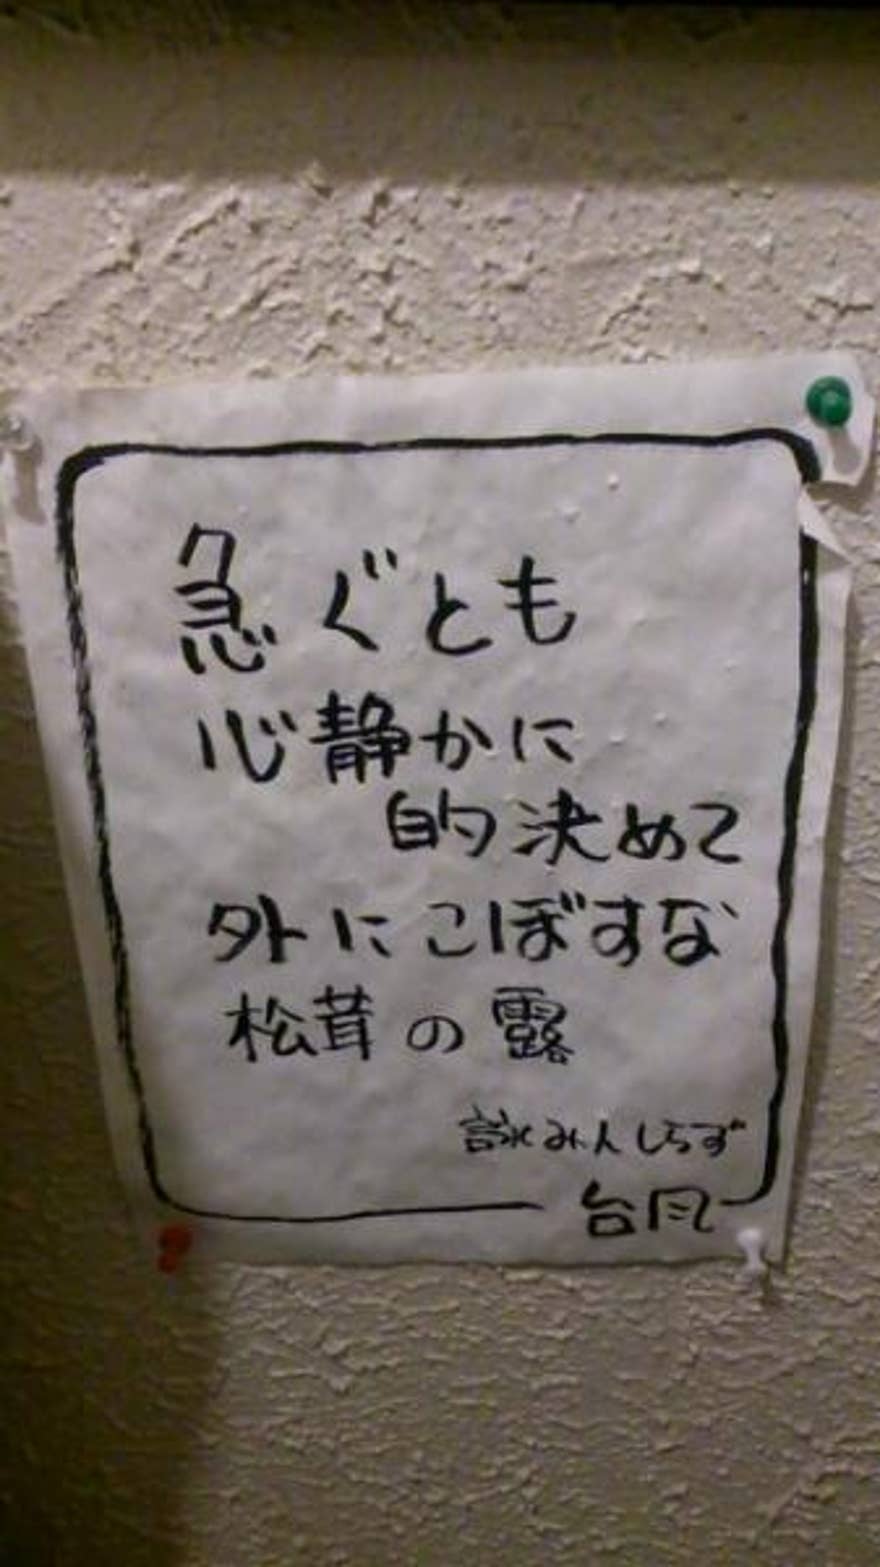 急ぐとも
心静かに
的決めて
外にこぼすな
松茸の露
詠み人しらず
台風